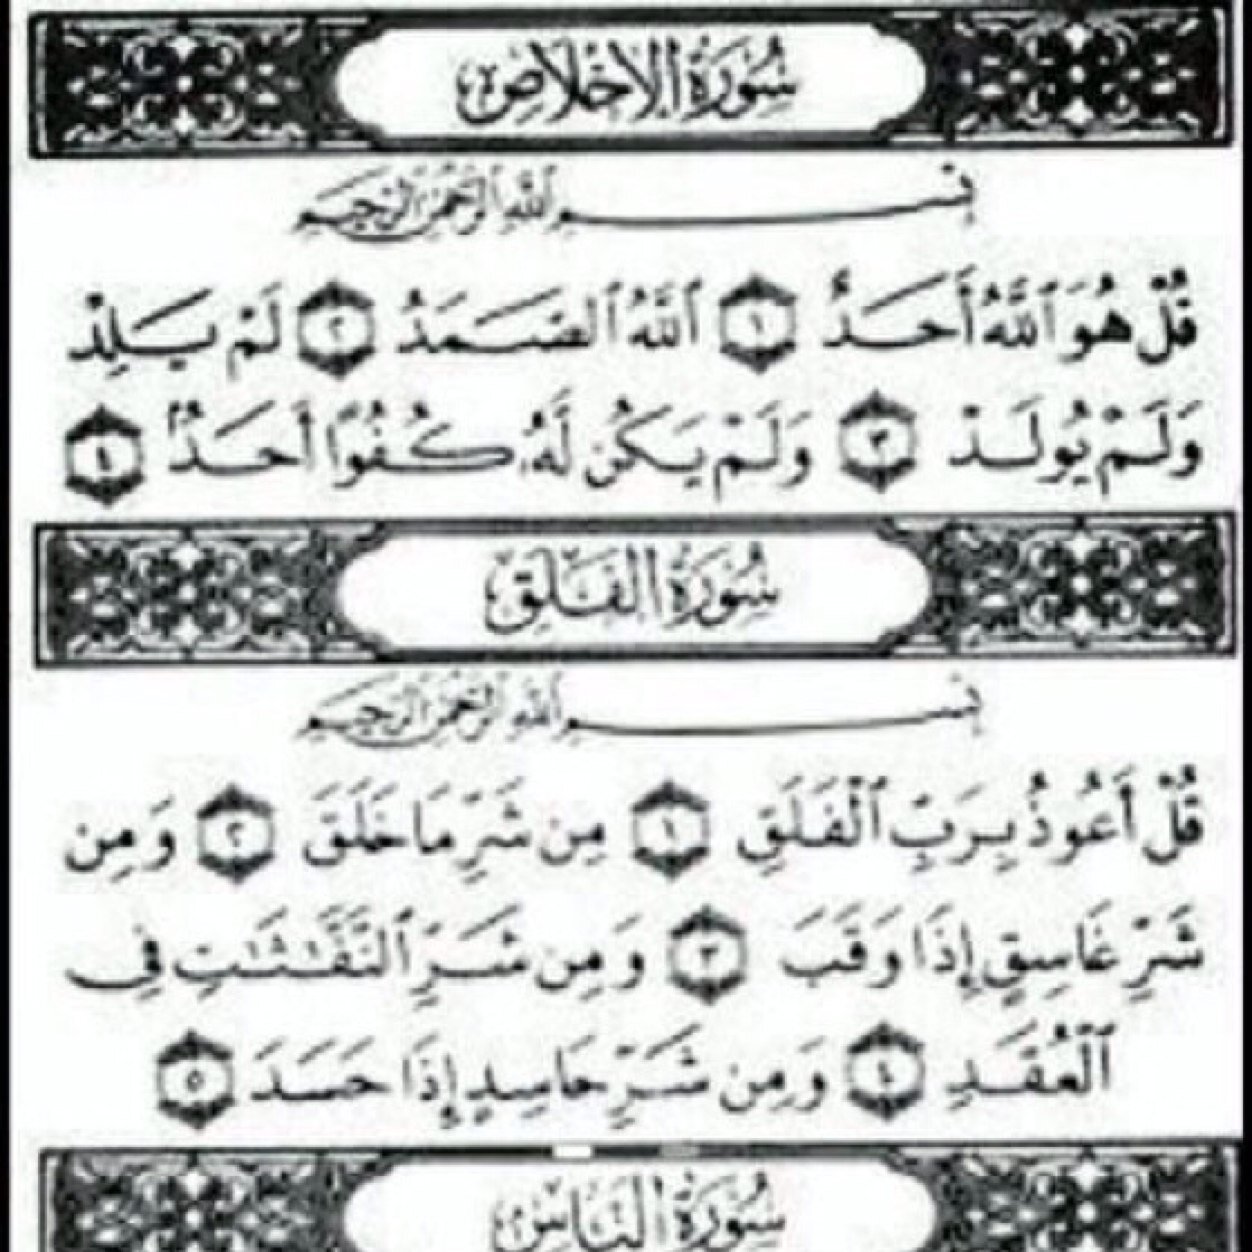 سُورَةُ الإِخْلَاصِ
بِسْمِ اللَّهِ الرَّحْمَٰنِ الرَّحِيمِ
قُلْ هُوَ ٱللَّهُ أَحَدٌ ١ ٱللَّهُ ٱلصَّمَدُ ٢ لَمْ يَلِدْ
وَلَمْ يُولَدْ ٣ وَلَمْ يَكُن لَّهُۥ كُفُوًا أَحَدٌۢ ٤
سُورَةُ الفَلَقِ
بِسْمِ اللَّهِ الرَّحْمَٰنِ الرَّحِيمِ
قُلْ أَعُوذُ بِرَبِّ ٱلْفَلَقِ ١ مِن شَرِّ مَا خَلَقَ ٢ وَمِن
شَرِّ غَاسِقٍ إِذَا وَقَبَ ٣ وَمِن شَرِّ ٱلنَّفَّٰثَٰتِ فِى
ٱلْعُقَدِ ٤ وَمِن شَرِّ حَاسِدٍ إِذَا حَسَدَ ٥
سُورَةُ النَّاسِ